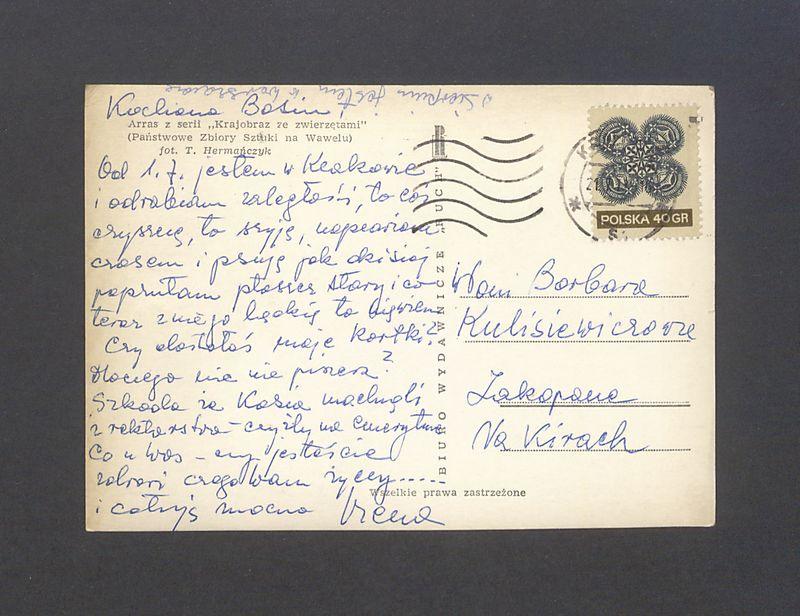 w sierpniu jestem w Warszawie
Kochana Basiu!
Arras z serii „Krajobraz ze zwierzętami"
(Państwowe Zbiory Sztuki na Wawelu)
fot. T. Hermańczyk
Od 1.7. jestem w Krakowie
i odrabiam zaległości, to coś
czyszczę, to szyję, naprawiam
czasem i psuję jak dzisiaj
poprułam płaszcz stary i co
teraz z niego będzie to nie wiem
Czy dostałaś moje kartki?
Dlaczego nic nie piszesz?
Szkoda że Kasia
z rektorstwa – czyżby na emeryturę
Co u Was – czy jesteście
zdrowi czego Wam życzy.....
i całuję mocno Irena
BIURO WYDAWNICZE „RUCH"
Wszelkie prawa zastrzeżone
POLSKA 40 GR
W Pani Barbara
Kulisiewiczowa
Zakopane
Na Kirach